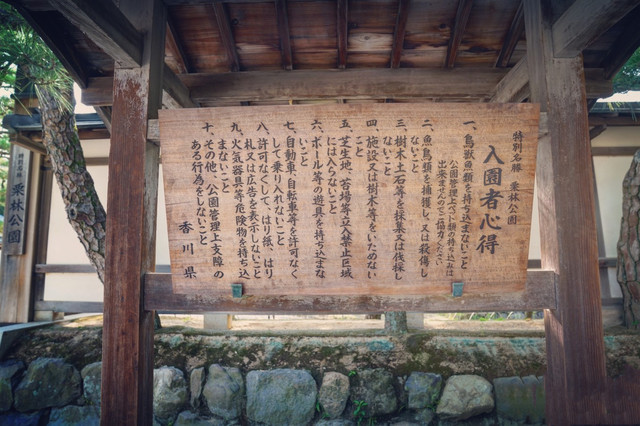 特別名勝 栗林公園
入園者心得
一、鳥獣魚類を持ち込まないこと
公園管理上ペット類の持ち込みは
出来ませんのでご協力ください。
二、魚鳥類を捕獲し、又は殺傷し
ないこと
三、樹木土石等を採集又は伐採し
ないこと
四、施設又は樹木等をいためない
こと
五、芝生地、苔場等立入禁止区域
には入らないこと
六、ボール等の遊具を持ち込まな
いこと
七、自動車、自転車等を許可なく
して乗り入れないこと
八、許可なくして、はり紙、はり
札又は広告を表示しないこと
九、火気器具等危険物を持ち込
まないこと
十、その他、公園管理上支障の
ある行為をしないこと
香川県
特別名勝
栗林公園